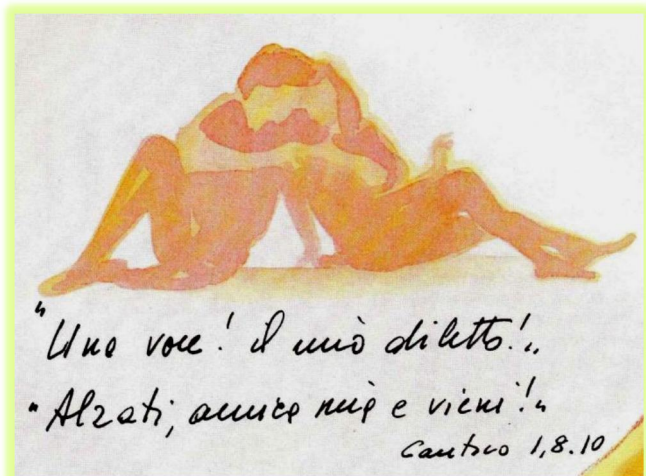 "Una voce! il mio diletto!"
"Alzati, amica mia e vieni!"
Cantico 1,8.10